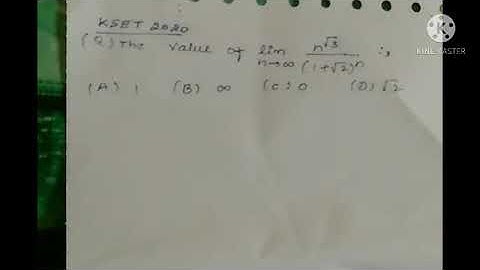 KSET 2020
(Q) The value of lim n→∞ n^√3 / (1+√2)^n is,
(A) 1 (B) ∞ (C) 0 (D) √2
KINEMASTER